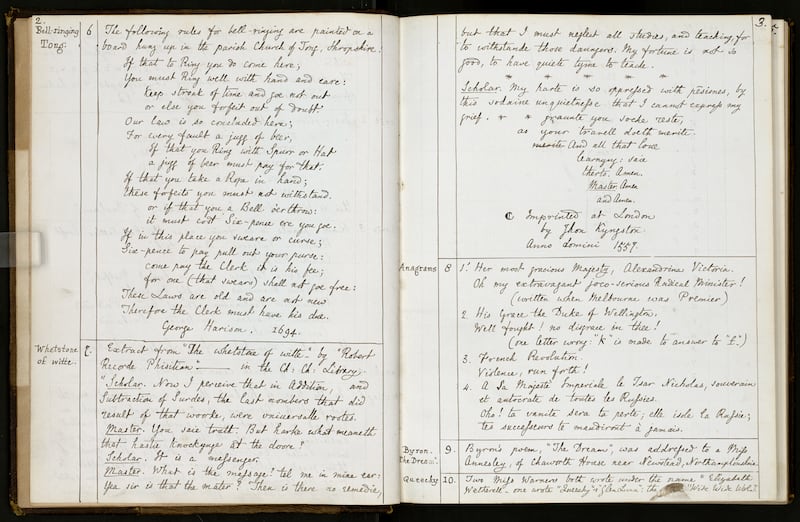 2.
Bell-ringing 6 The following rules for bell-ringing are painted on a
Tong. board hung up in the parish Church of Tong, Shropshire:
If that to Ring you do come here;
You must Ring well with hand and eare:
keep stroak of time and goe not out
or else you forfeit out of doubt
Our law is so concluded here;
For every fault a jugg of beer,
If that you Ring with Spurr or Hat
a jugg of beer must pay for that.
If that you take a Rope in hand;
These forfeits you must not withstand.
or if that you a Bell ov'erthrow:
it must cost Six-pence ere you goe.
If in this place you sweare or curse;
Six-pence to pay pull out your purse:
come pay the Clerk it is his fee;
for one (that swears) shall not goe free:
These Laws are old and are not new
Therefore the Clerk must have his due.
George Harison. 1694.
Whetstone 7. Extract from "The whetstone of witte" by "Robert
of witte. Recorde Phisition" — in the Ch: Ch: Library.
"Scholar. Now I perceive that in Addition, and
Subtraction of Surdes, the last nombers that did
result of that woorke, were universalle rootes.
Master. You saie truth. But harke what meaneth
that hastie knockynge at the doore?
Scholar. It is a messenger.
Master. What is the message? tel me in mine ear:
Yea sir is that the mater? Then is there no remedie,
3.
but that I must neglect all studies, and teaching, for
to withstande those daungers. My fortune is not so
good, to have quiete tyme to teache.
* * * * *
Scholar. My harte is so oppressed with pesisnes, by
this sodaine unquietnesse that I cannot express my
grief. * * graunte you soche reste,
as your travell doeth merite.
merite And all that love
learnyng: saie
therto. Amen.
Master. Amen
and Amen.
Imprinted at London
by Jhon Kyngston.
Anno domini 1557.
Anagrams 8 1. Her most gracious Majesty, Alexandrina Victoria.
Oh my extravagant joco-serious Radical Minister!
(written when Melbourne was Premier)
2. His Grace the Duke of Wellington,
Well fought! no disgrace in thee!
(one letter wrong: "K" is made to answer to "E".)
3. French Revolution.
Violence, run forth!
4. A Sa Majesté Imperiale le Tsar Nicholas, souverain
et autocrate de toutes les Russies.
Oho! ta vanite sera ta perte; elle isole la Russie;
tes successeurs te maudiront à jamais.
Byron. 9. Byron's poem, "The Dream", was addressed to a Miss
"The Dream". Annesley, of Chaworth House near Newstead, Northamptonshire.
Queechy 10. Two Miss Warners both wrote under the name "Elizabeth
Wetherell - one wrote "Queechy" the "Wide Wide World."